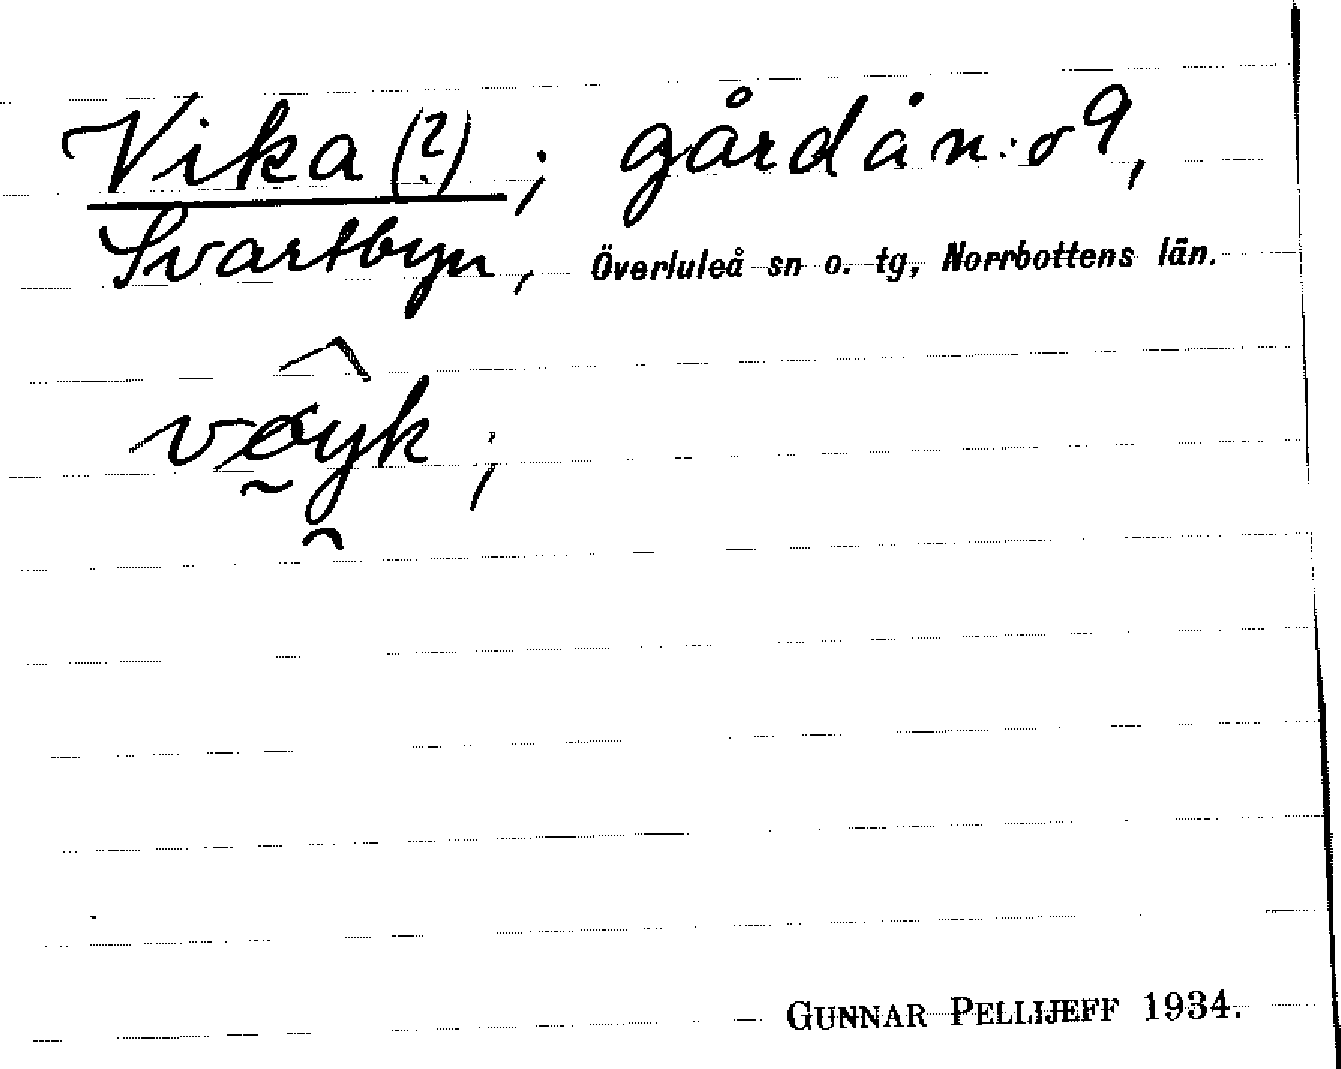 Vika (?); gård å n:o 9,
Svartbyn, Överluleå sn o. tg, Norrbottens län.
vøyk;
GUNNAR PELLIJEFF 1934.